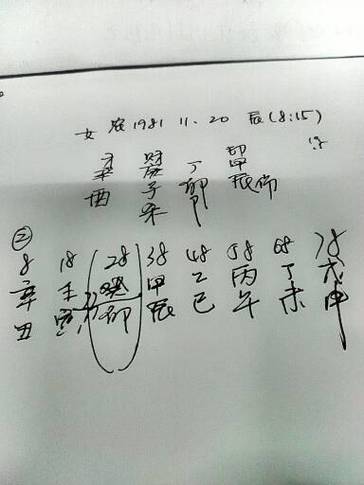 女 农1981 11.20 辰(8:15)
才 财 印
辛 庚 丁 甲
酉 子 卯 辰 伤
杀 卩
②
8 18 28 38 48 58 68 78
辛 壬 癸 甲 乙 丙 丁 戊
丑 寅 卯 辰 巳 午 未 申